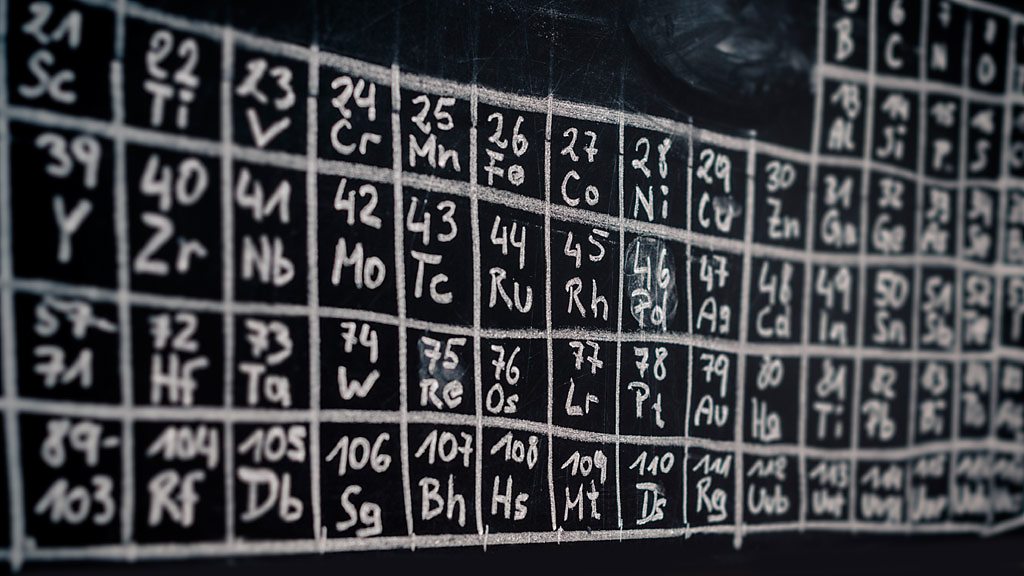 5 6 7 8
B C N O
13 14 15 16
Al Si P S
21 22 23 24 25 26 27 28 29 30 31 32 33
Sc Ti V Cr Mn Fe Co Ni Cu Zn Ga Ge As Se
39 40 41 42 43 44 45 46 47 48 49 50 51 52
Y Zr Nb Mo Tc Ru Rh Pd Ag Cd In Sn Sb Te
57- 72 73 74 75 76 77 78 79 80 81 82 83
71 Hf Ta W Re Os Lr Pt Au Hg Ti Pb Bi Po
89- 104 105 106 107 108 109 110 111 112 113 114
103 Rf Db Sg Bh Hs Mt Ds Rg Uub Uut Uuq